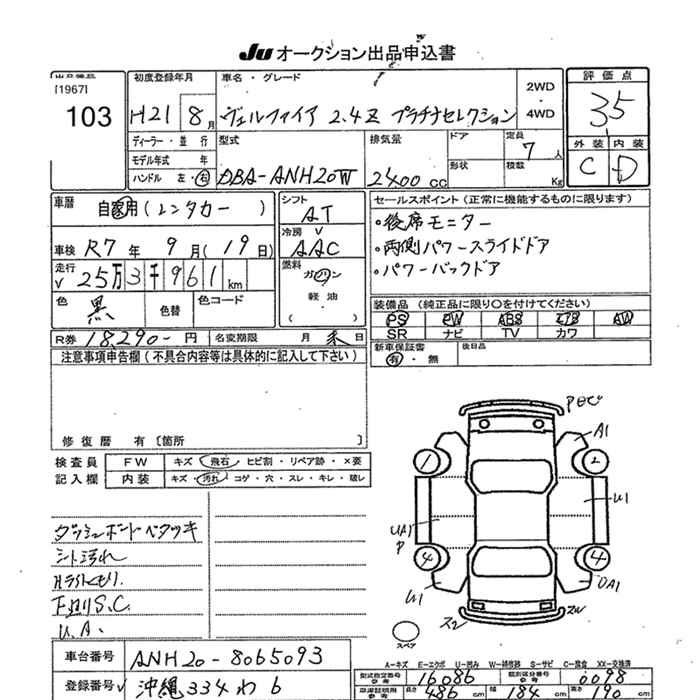 Ju オークション出品申込書
出品番号 初度登録年月 車名・グレード 2WD・4WD 評価点
[1967] 103 H21 8月 ヴェルファイア 2.4Z プラチナセレクション 35
ディーラー・並行 型式 排気量 ドア 定員 7人 外装 内装
モデル年式 年 形状 積載 C D
ハンドル 左・右 DBA-ANH20W 2400cc Kg
車歴 自家用(レンタカー) シフト AT セールスポイント(正常に機能するものに限ります)
車検 R7年9月(19日) 冷房 AAC ・後席モニター
・両側パワースライドドア
走行 25万3千961km 燃料 ガソリン ・パワーバックドア
軽油
色 黒 色替 色コード ( ) 装備品(純正品に限り○を付けてください)
PS PW ABS エアB AW
R券 18,290-円 名変期限 月末日 SR ナビ TV カワ
注意事項申告欄(不具合内容等は具体的に記入して下さい) 新車保証書 有・無 後日品
修復歴 有[箇所 ]
検査員 FW キズ・飛石・ヒビ割・リペア跡・×要
記入欄 内装 キズ・汚れ・コゲ・穴・スレ・キレ・破レ
A1
1 2
U1
UA1
P
4 4
U1 UA1
スペア
ダッシュボードベタツキ
シート汚れ
下廻りS.C.
U.A.
A-キズ E-エクボ U-凹み W-補修跡 S-サビ C-腐食 XX-交換済
車台番号 ANH20-8065093
型式指定番号 参考 16086 類別区分番号 参考 0098
登録番号 沖縄 334 わ 6
長さ 486cm 幅 184cm 高さ 190cm